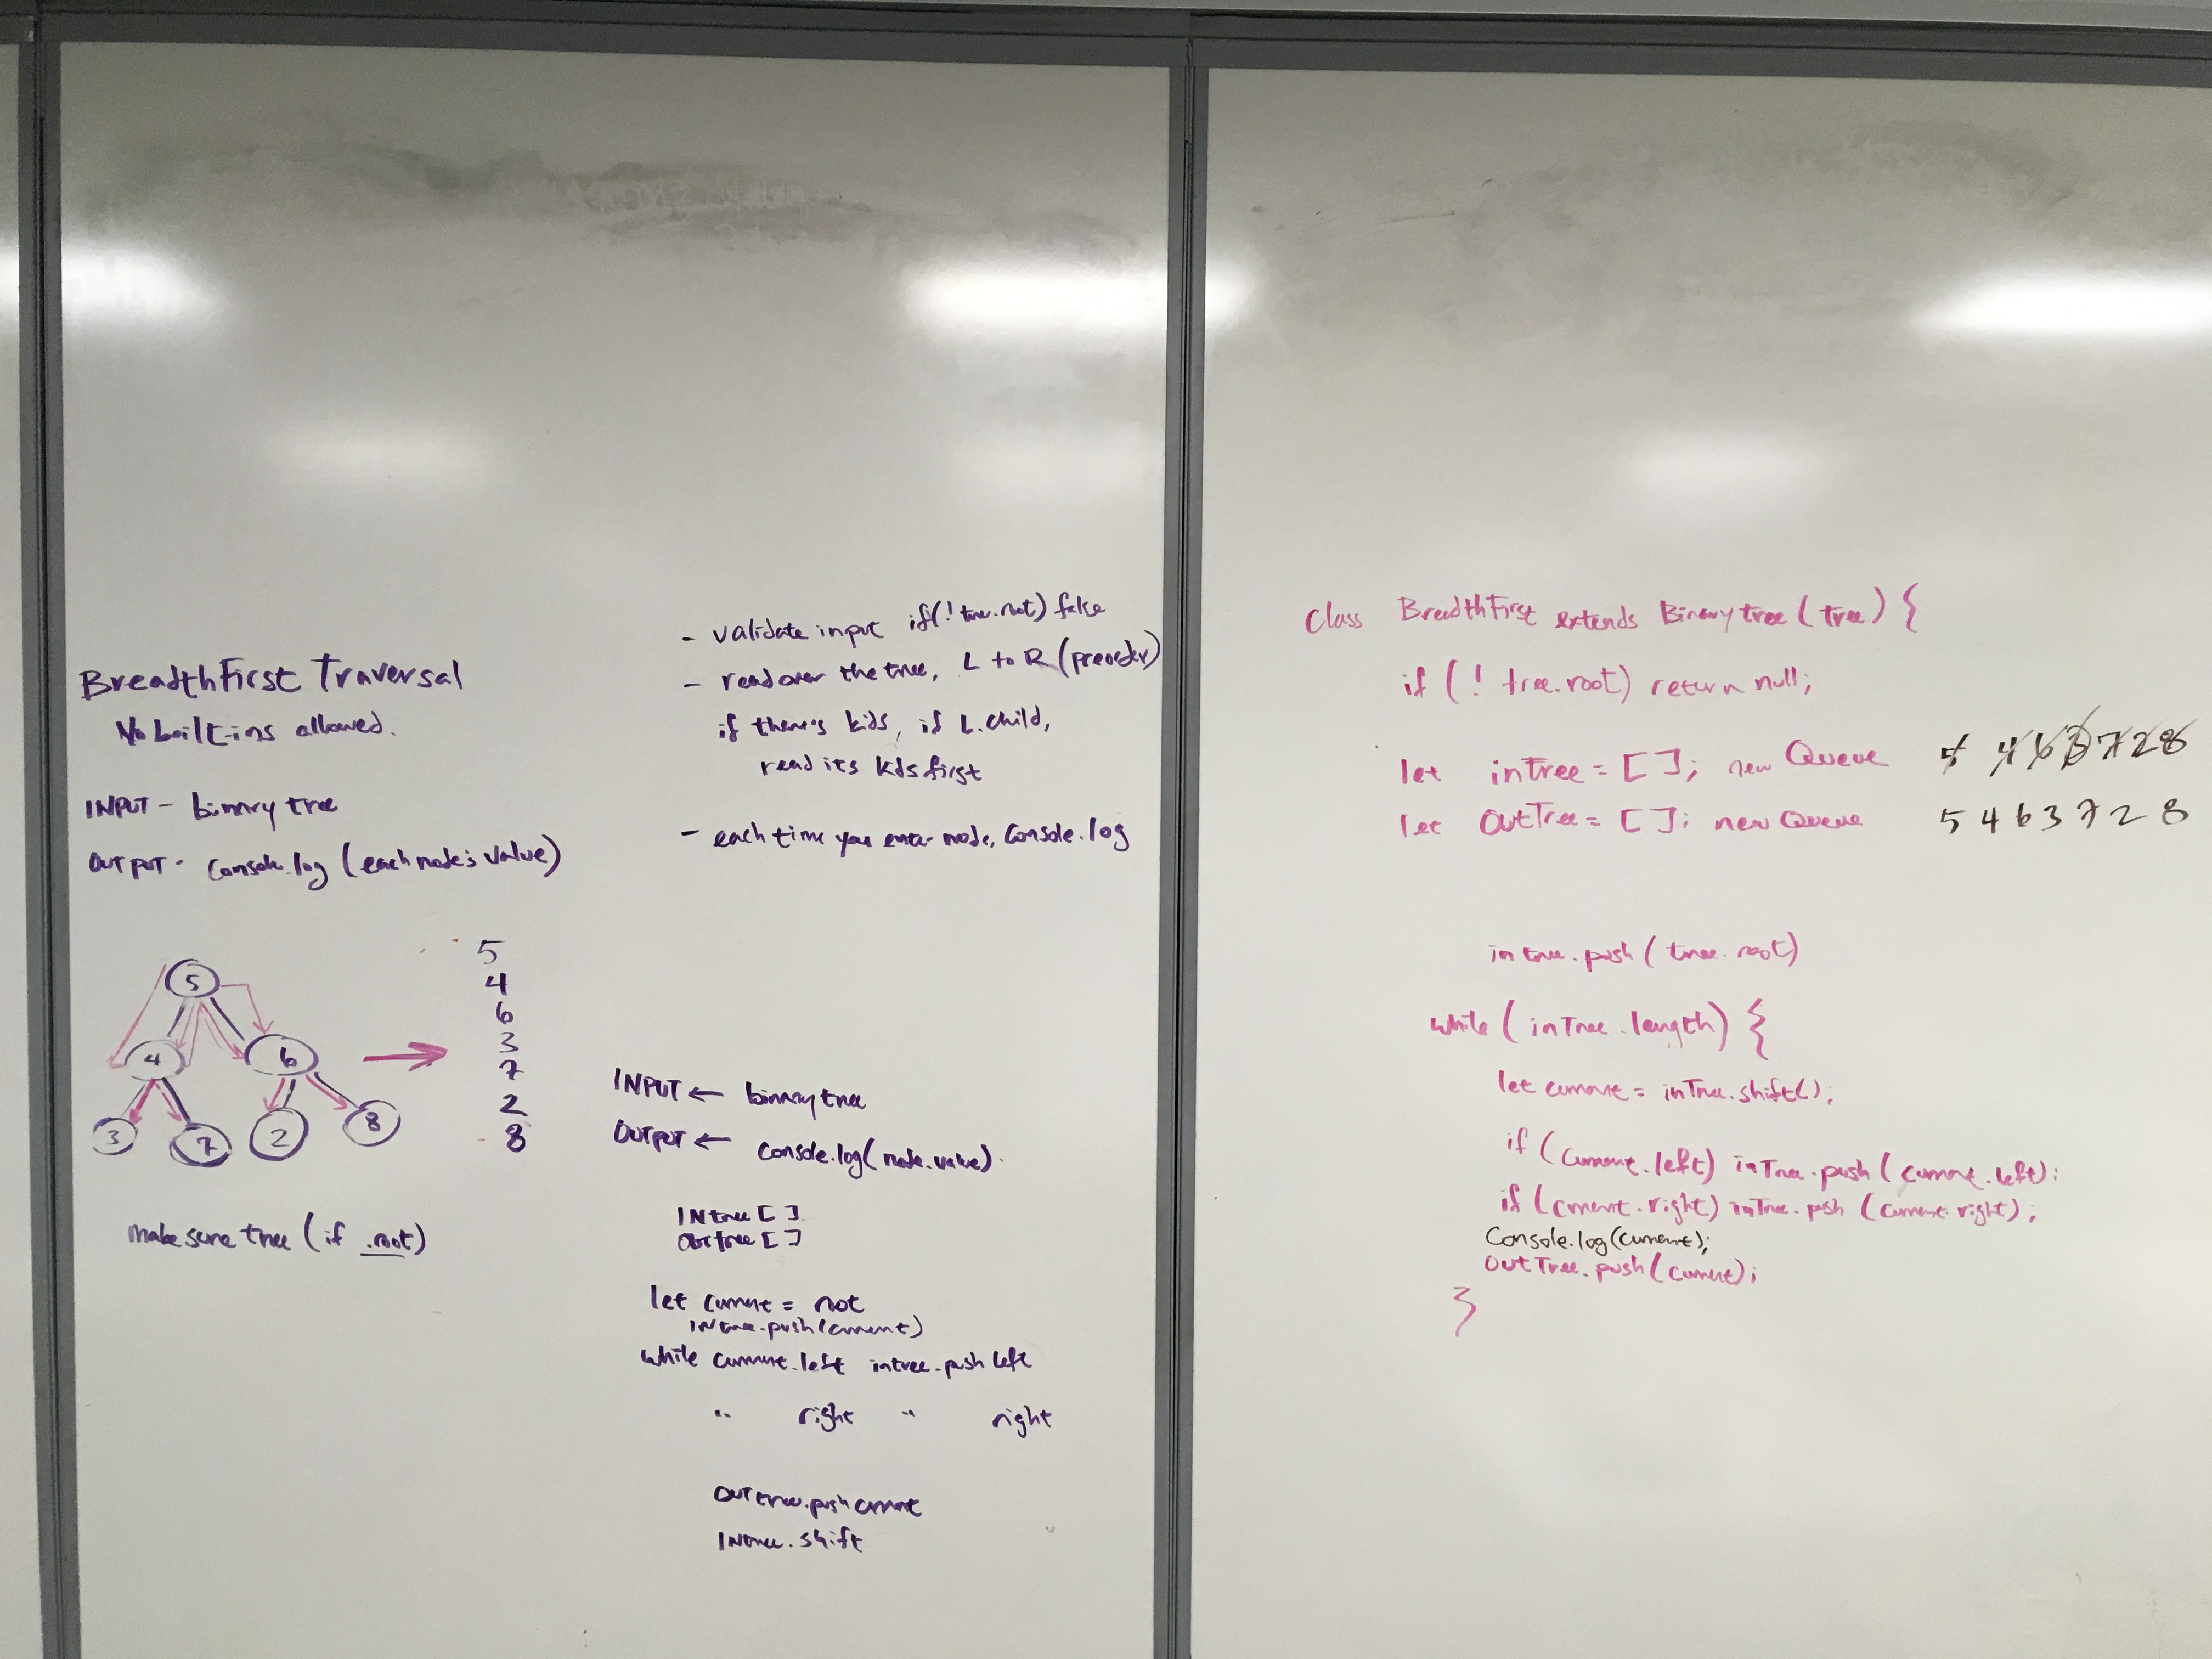 BreadthFirst Traversal
No built-ins allowed.
INPUT - binary tree
OUTPUT - console.log (each node's value)
5
4 6
3 7 2 8
5
4
6
3
7
2
8
make sure tree (if .root)
- validate input if(! tree.root) false
- read over the tree, L to R (preorder)
if there's kids, if L.child,
read its kids first
- each time you enter node, console.log
INPUT ← binary tree
OUTPUT ← console.log(node.value).
INtree [ ]
OUTtree [ ]
let current = root
INtree.push(current)
while current.left intree.push left
" right " right
OUTtree.push current
INtree.shift
Class BreadthFirst extends Binary tree (tree) {
if (! tree.root) return null;
let inTree = [ ]; new Queue 5 4 6 3 7 2 8
let OutTree = [ ]; new Queue 5 4 6 3 7 2 8
in tree.push (tree.root)
while (inTree.length) {
let current = inTree.shift();
if (current.left) inTree.push (current.left);
if (current.right) inTree.push (current.right);
Console.log(current);
OutTree.push(current);
}